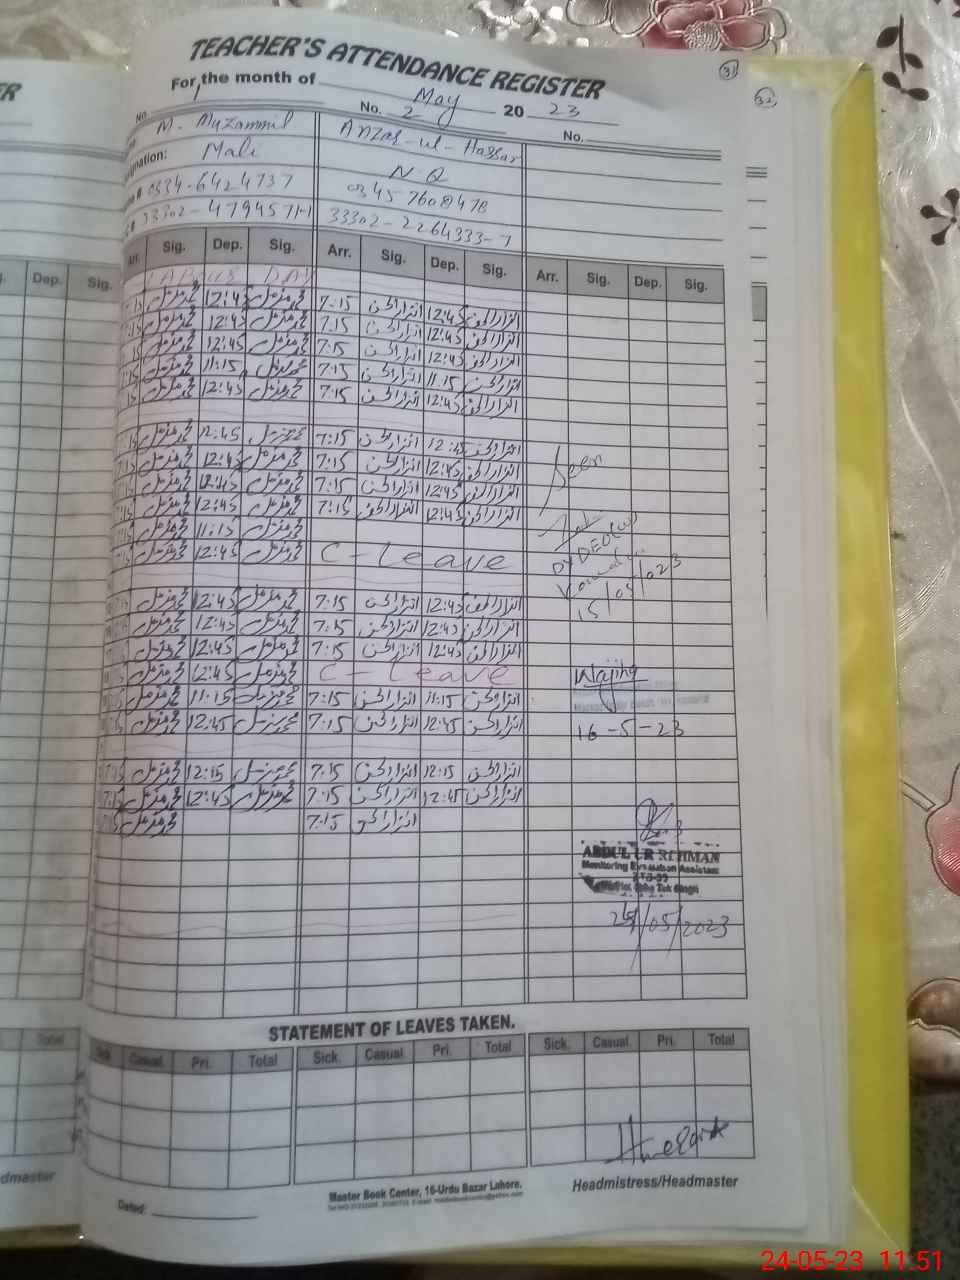 TEACHER'S ATTENDANCE REGISTER
For the month of May 2023
31
32
No. 1 No. 2 No.
M. Muzammil Anzar-ul-Hassan
Designation: Mali N.Q
0334-6424737 0345 7608478
33302-4794571-1 33302-2264333-7
Arr. Sig. Dep. Sig. Arr. Sig. Dep. Sig. Arr. Sig. Dep. Sig.
Dep. Sig.
LABOUR DAY
7:15 محمد مزمل 12:45 محمد مزمل 7:15 انزارالحسن 12:45 انزارالحسن
7:15 محمد مزمل 12:45 محمد مزمل 7:15 انزارالحسن 12:45 انزارالحسن
7:15 محمد مزمل 12:45 محمد مزمل 7:15 انزارالحسن 12:45 انزارالحسن
7:15 محمد مزمل 11:15 محمد مزمل 7:15 انزارالحسن 11:15 انزارالحسن
7:15 محمد مزمل 12:45 محمد مزمل 7:15 انزارالحسن 12:45 انزارالحسن
7:15 محمد مزمل 12:45 محمد مزمل 7:15 انزارالحسن 12:45 انزارالحسن
7:15 محمد مزمل 12:45 محمد مزمل 7:15 انزارالحسن 12:45 انزارالحسن
7:15 محمد مزمل 12:45 محمد مزمل 7:15 انزارالحسن 12:45 انزارالحسن
7:15 محمد مزمل 12:45 محمد مزمل 7:15 انزارالحسن 12:45 انزارالحسن
7:15 محمد مزمل 11:15 محمد مزمل
7:15 محمد مزمل 12:45 محمد مزمل C-Leave
7:15 محمد مزمل 12:45 محمد مزمل 7:15 انزارالحسن 12:45 انزارالحسن
7:15 محمد مزمل 12:45 محمد مزمل 7:15 انزارالحسن 12:45 انزارالحسن
7:15 محمد مزمل 12:45 محمد مزمل 7:15 انزارالحسن 12:45 انزارالحسن
7:15 محمد مزمل 12:45 محمد مزمل C-Leave
7:15 محمد مزمل 11:15 محمد مزمل 7:15 انزارالحسن 11:15 انزارالحسن
7:15 محمد مزمل 12:45 محمد مزمل 7:15 انزارالحسن 12:45 انزارالحسن
7:15 محمد مزمل 12:15 محمد مزمل 7:15 انزارالحسن 12:15 انزارالحسن
7:15 محمد مزمل 12:45 محمد مزمل 7:15 انزارالحسن 12:45 انزارالحسن
7:15 محمد مزمل 7:15 انزارالحسن
Seen
DYDEO
15/05/023
16-5-23
ABDUL UR REHMAN
Monitoring Evaluation Assistant
24/05/2023
STATEMENT OF LEAVES TAKEN.
Sick Casual Pri. Total Sick. Casual Pri. Total Sick. Casual Pri. Total
Total
Headmaster
Dated:
Master Book Center, 16-Urdu Bazar Lahore.
Headmistress/Headmaster
24-05-23 11:51